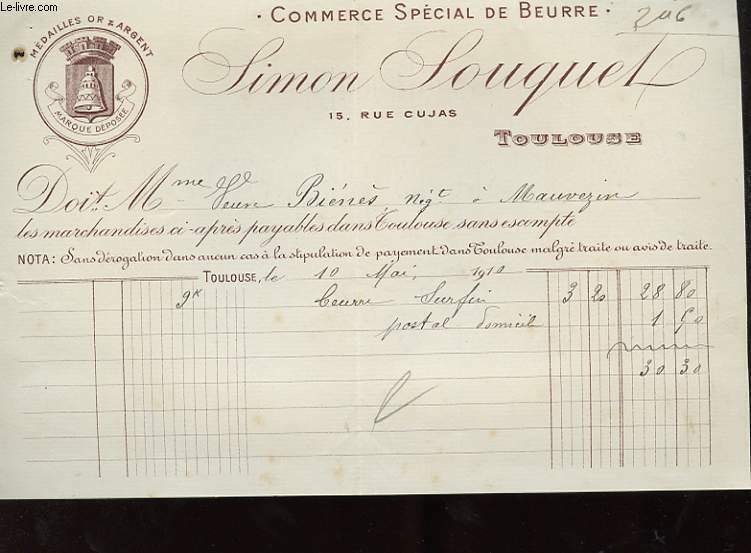 Le-livre.com
· COMMERCE SPÉCIAL DE BEURRE ·
206
MÉDAILLES OR & ARGENT
MARQUE DÉPOSÉE
Simon Souquet
15, RUE CUJAS
TOULOUSE
Doit Mme Veuve Biénès, Negt à Mauvezin
les marchandises ci-après payables dans Toulouse sans escompte
NOTA: Sans dérogation dans aucun cas à la stipulation de payement dans Toulouse malgré traite ou avis de traite.
TOULOUSE, le 10 Mai, 1910
9K Beurre Surfin 3 20 28 80
postal domicile 1 50
30 30